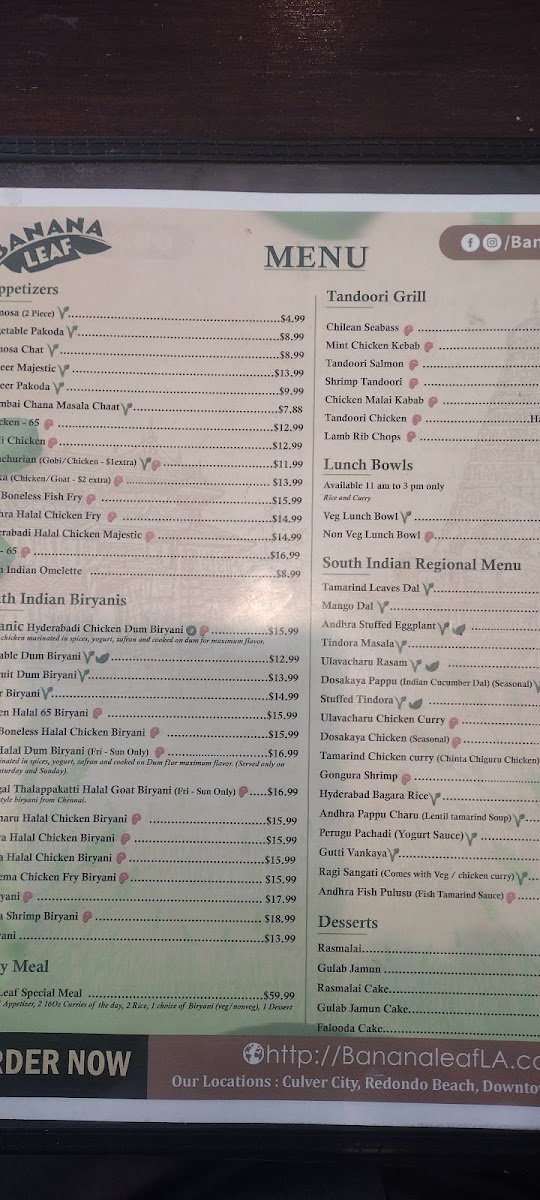 BANANA
LEAF
MENU
/Ban
ppetizers
nosa (2 Piece) $4.99
etable Pakoda $8.99
nosa Chat $8.99
eer Majestic $13.99
eer Pakoda $9.99
mbai Chana Masala Chaat $7.88
cken - 65 $12.99
i Chicken $12.99
nchurian (Gobi/Chicken - $1extra) $11.99
ka (Chicken/Goat - $2 extra) $13.99
Boneless Fish Fry $15.99
hra Halal Chicken Fry $14.99
erabadi Halal Chicken Majestic $14.99
- 65 $16.99
h Indian Omelette $8.99
th Indian Biryanis
anic Hyderabadi Chicken Dum Biryani $15.99
chicken marinated in spices, yogurt, zafran and cooked on dum for maximum flavor.
able Dum Biryani $12.99
ruit Dum Biryani $13.99
r Biryani $14.99
en Halal 65 Biryani $15.99
Boneless Halal Chicken Biryani $15.99
Halal Dum Biryani (Fri - Sun Only) $16.99
inated in spices, yogurt, zafran and cooked on Dum flor maximum flavor. (Served only on
aturday and Sunday).
gal Thalappakatti Halal Goat Biryani (Fri - Sun Only) $16.99
style biryani from Chennai.
haru Halal Chicken Biryani $15.99
ra Halal Chicken Biryani $15.99
a Halal Chicken Biryani $15.99
ema Chicken Fry Biryani $15.99
yani $17.99
a Shrimp Biryani $18.99
ani $13.99
y Meal
Leaf Special Meal $59.99
Appetizer, 2 16Oz Curries of the day, 2 Rice, 1 choice of Biryani (veg/nonveg), 1 Dessert
Tandoori Grill
Chilean Seabass
Mint Chicken Kebab
Tandoori Salmon
Shrimp Tandoori
Chicken Malai Kabab
Tandoori Chicken Ha
Lamb Rib Chops
Lunch Bowls
Available 11 am to 3 pm only
Rice and Curry
Veg Lunch Bowl
Non Veg Lunch Bowl
South Indian Regional Menu
Tamarind Leaves Dal
Mango Dal
Andhra Stuffed Eggplant
Tindora Masala
Ulavacharu Rasam
Dosakaya Pappu (Indian Cucumber Dal) (Seasonal)
Stuffed Tindora
Ulavacharu Chicken Curry
Dosakaya Chicken (Seasonal)
Tamarind Chicken curry (Chinta Chiguru Chicken)
Gongura Shrimp
Hyderabad Bagara Rice
Andhra Pappu Charu (Lentil tamarind Soup)
Perugu Pachadi (Yogurt Sauce)
Gutti Vankaya
Ragi Sangati (Comes with Veg / chicken curry)
Andhra Fish Pulusu (Fish Tamarind Sauce)
Desserts
Rasmalai
Gulab Jamun
Rasmalai Cake
Gulab Jamun Cake
Falooda Cake
RDER NOW
http://BananaleafLA.co
Our Locations : Culver City, Redondo Beach, Downto